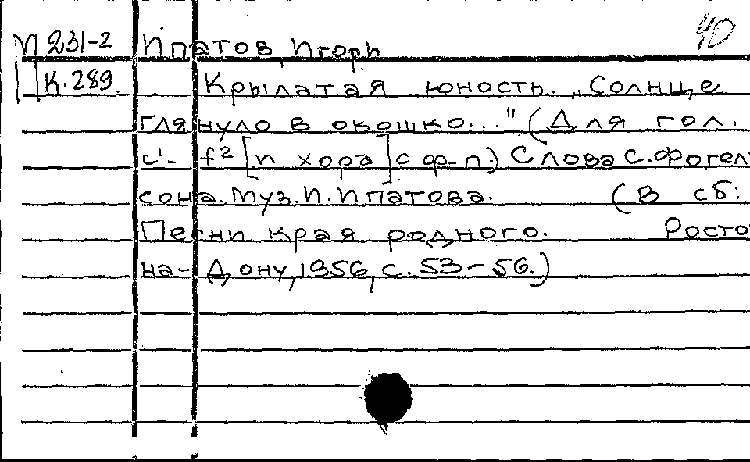 40
П 231-2 Ипатов, Игорь
К.289. Крылатая юность. „Солнце
глянуло в окошко..." (Для гол.
c¹- f² [и хора] с ф-п.) Слова С.Фогель
сона. Муз. И. Ипатова. (В сб:
Песни края родного. Росто
на-Дону, 1956, с. 53-56.)